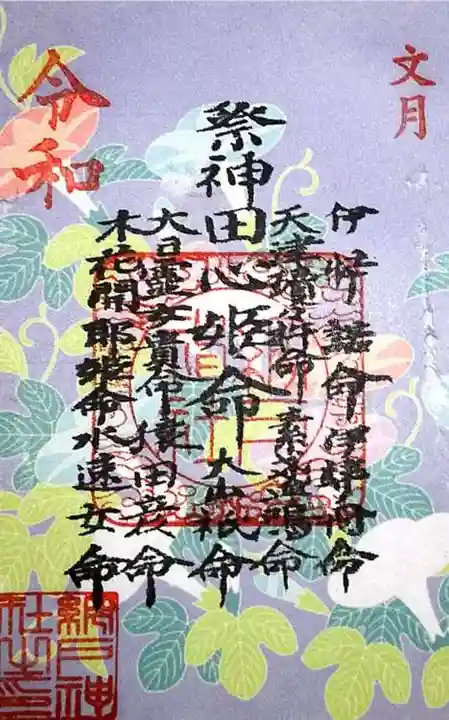 文月
伊弉諾命伊弉冉命
天津瓊々杵命素盞嗚命
祭神田心姫命大山祇命
大日霊女貴命猿田彦命
木花開耶姫命水速女命
令和
網戸神
社之印